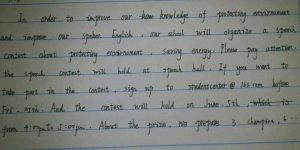 In order to improve our knowledge of protecting environment
and improve our spoken English, our school will organize a speech
contest about protecting environment, saving energy. Please pay attention,
the speech contest will hold at speech hall. If you want to
take part in the contest, sign up to studentcenter@163.com before
Fri. And the contest will hold on June 5th, which is
from to 5:00 pm. About the prize, we prepare 3 champions, 6